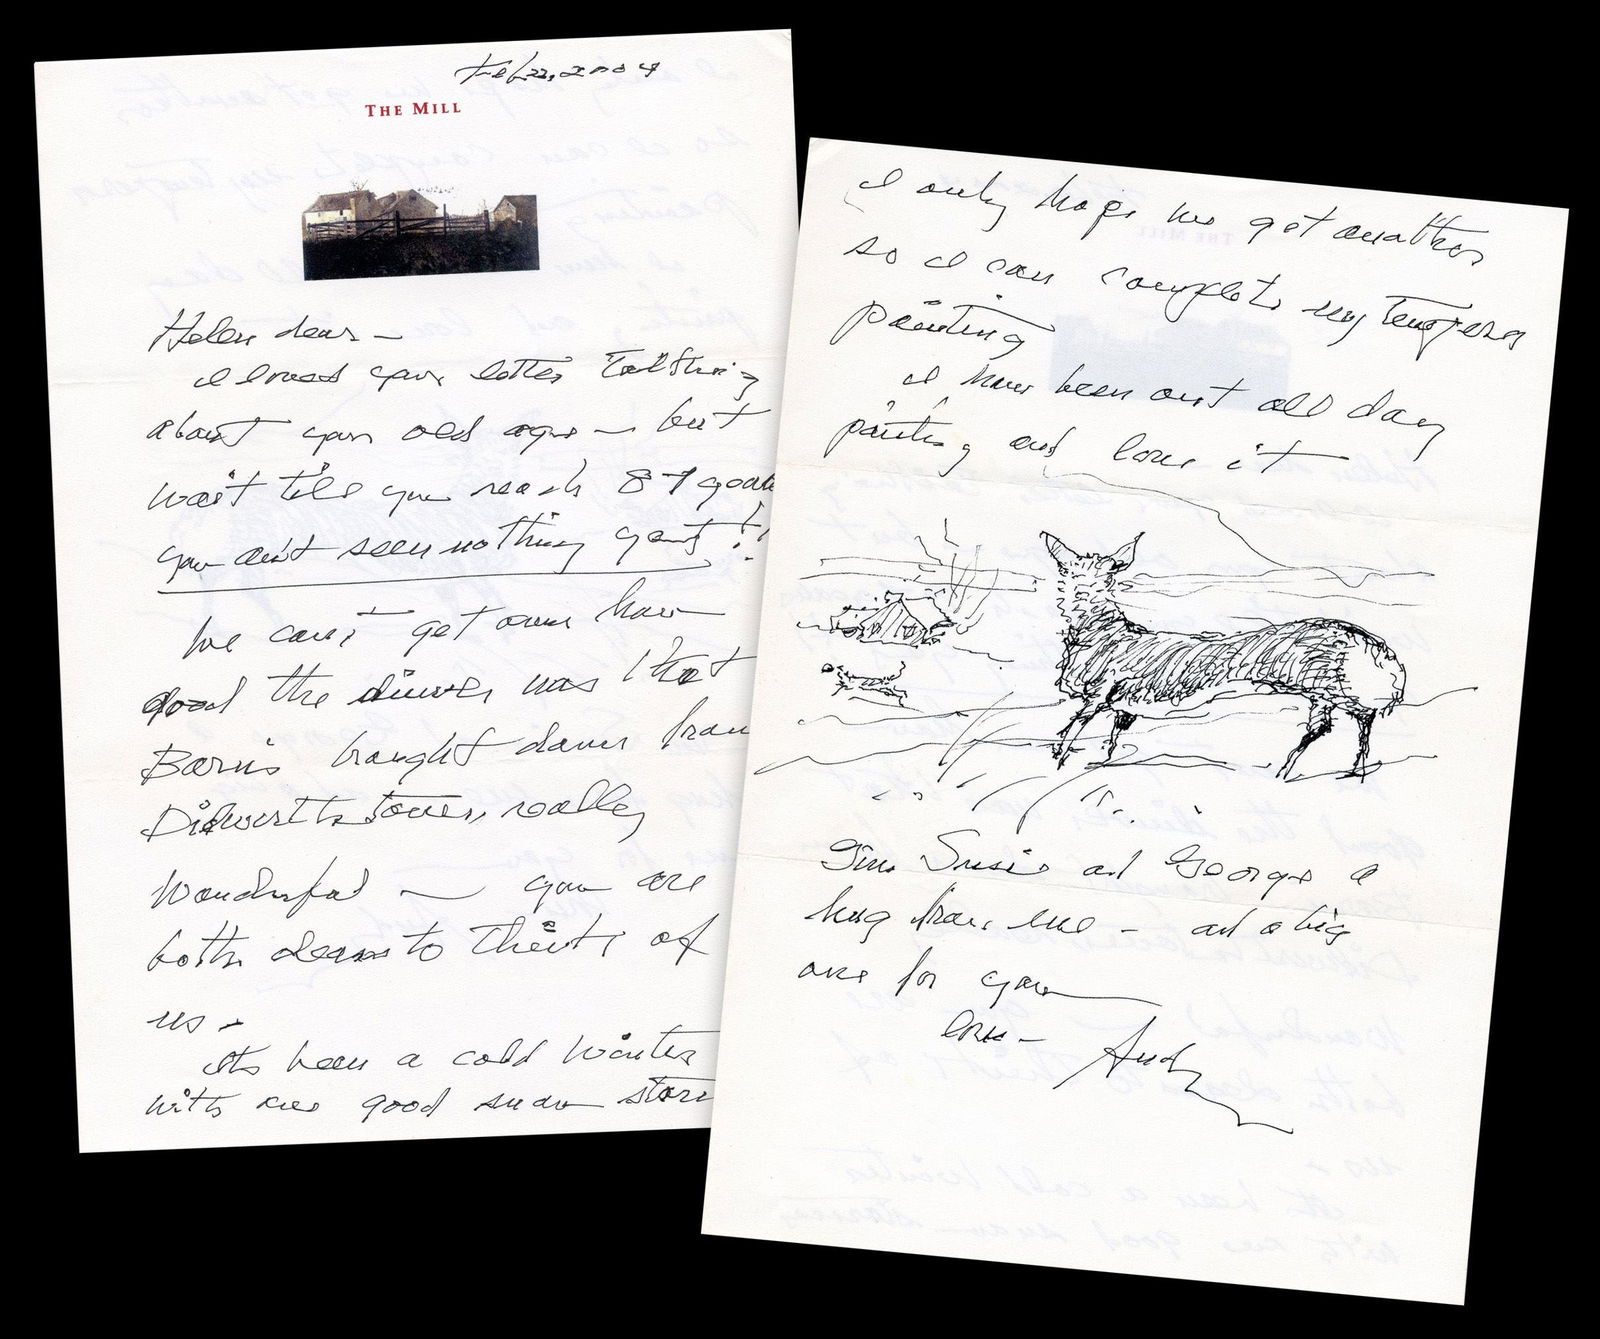 Feb 22, 2004
THE MILL
Helen dear –
I loved your letter talking
about your old age – but
wait till you reach 87 years
you ain't seen nothing yet!!
We can't get over how
good the dinner was that
brought down from
really
wonderful – you are
both dears to think of
us –
Its been a cold winter
with one good snow storm
I only hope we get another
so I can complete my tempera
painting
I have been out all day
painting and love it
Give Susie and George a
hug from me – and a big
one for you
love – Andy